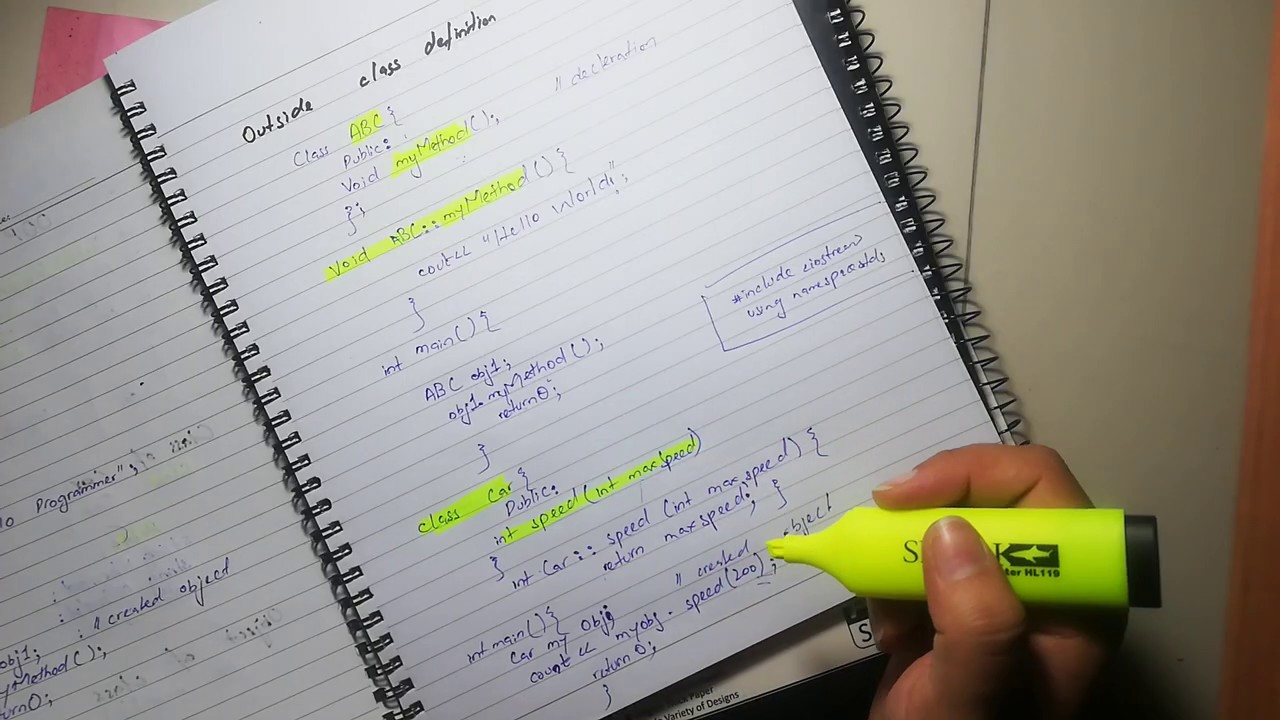 Outside class definition
Class ABC {
Public:
Void myMethod(); // decleration
};
Void ABC::myMethod() {
cout<< "Hello World";
}
int main() {
ABC obj1;
obj1.myMethod();
return 0;
}
#include <iostream>
using namespace std;
class Car {
Public:
int speed (int maxspeed)
}
int Car:: speed (int maxspeed) {
return maxspeed; }
// created object
int main() {
Car my obj;
cout << myobj. speed(200);
return 0;
}
Programmer";
// created object
obj1;
myMethod();
return 0;
SHARK
HL119
Paper
Variety of Designs